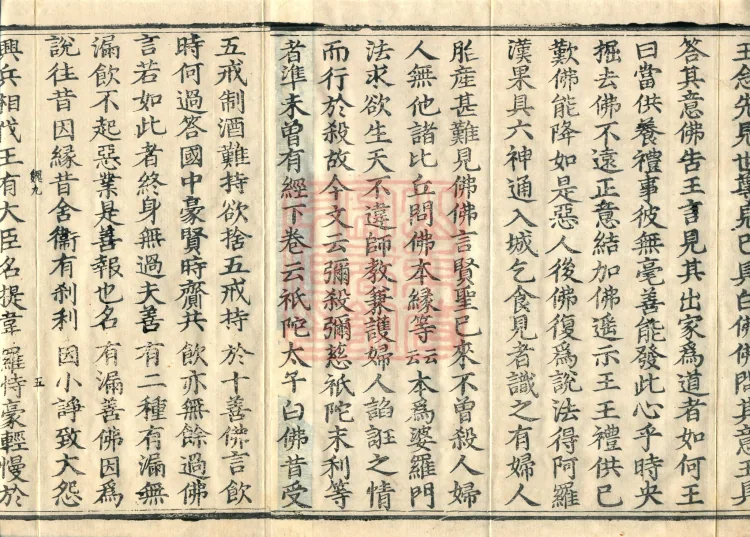 王念先見世尊
答其意佛告王言見其出家為道者如何王
曰當供養禮事彼無毫善能發此心乎時央
掘去佛不遠正意結加佛遙示王王禮供已
歎佛能降如是惡人後佛復為說法得阿羅
漢果具六神通入城乞食見者識之有婦人
胎產甚難見佛佛言賢聖已來不曾殺人婦
人無他諸比丘問佛本緣等云云本為婆羅門
法求欲生天不違師教兼護婦人諂誑之情
而行於殺故今文云彌殺彌慈祇陀末利等
者準未曾有經下卷云祇陀太子白佛昔受
五戒制酒難持欲捨五戒持於十善佛言飲
時何過答國中豪賢時齎共飲亦無餘過佛
言若如此者終身無過夫善有二種有漏無
漏飲不起惡業是善報也名有漏善佛因為
說往昔因緣昔舍衞有剎利因小諍致大怨
五
興兵相伐王有大臣名提韋羅恃豪輕慢於